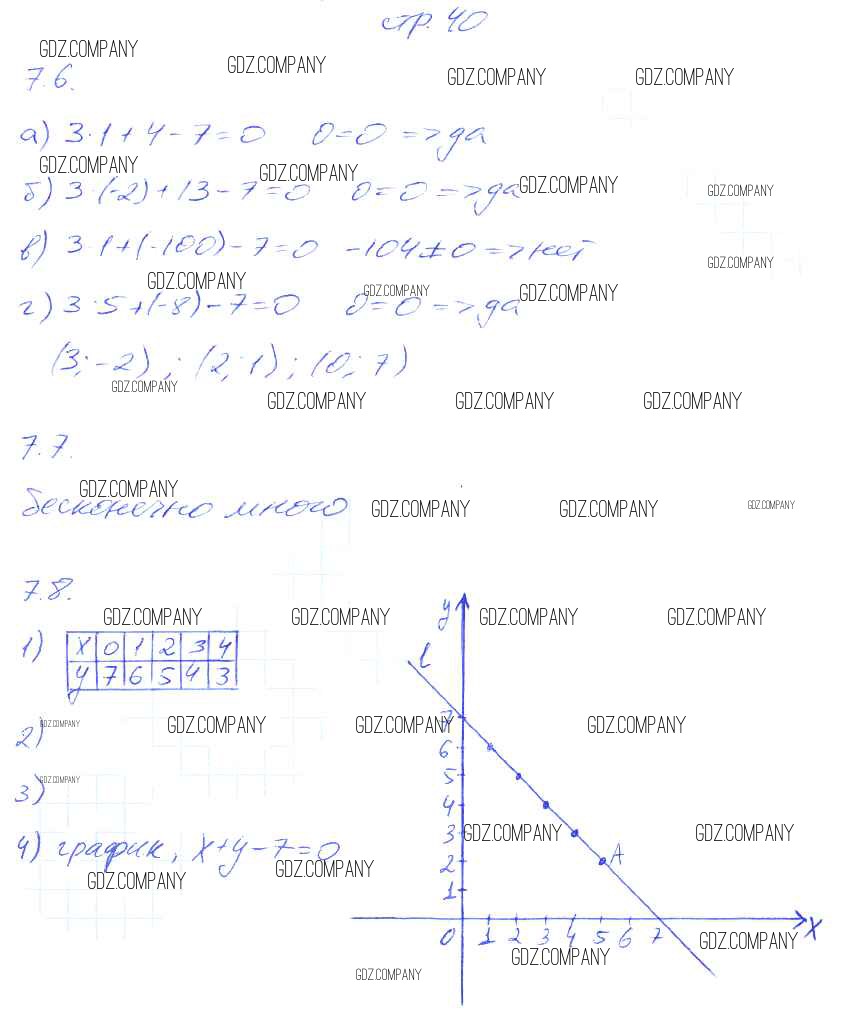 стр. 40
GDZ.COMPANY GDZ.COMPANY GDZ.COMPANY GDZ.COMPANY
7.6.
а) 3·1+4-7=0 0=0 =>да
GDZ.COMPANY GDZ.COMPANY GDZ.COMPANY GDZ.COMPANY
б) 3·(-2)+13-7=0 0=0 =>да
в) 3·1+(-100)-7=0 -104≠0 =>нет
GDZ.COMPANY GDZ.COMPANY GDZ.COMPANY GDZ.COMPANY
г) 3·5+(-8)-7=0 0=0 =>да
(3;-2); (2;1); (0;7)
GDZ.COMPANY GDZ.COMPANY GDZ.COMPANY GDZ.COMPANY
7.7.
GDZ.COMPANY GDZ.COMPANY GDZ.COMPANY GDZ.COMPANY
бесконечно много
7.8.
GDZ.COMPANY GDZ.COMPANY GDZ.COMPANY GDZ.COMPANY
1) x 0 1 2 3 4
y 7 6 5 4 3
2) GDZ.COMPANY GDZ.COMPANY GDZ.COMPANY GDZ.COMPANY
3) GDZ.COMPANY GDZ.COMPANY GDZ.COMPANY
4) график, x+y-7=0
GDZ.COMPANY GDZ.COMPANY
y
l
7
6
5
4
3
2 A
1
0 1 2 3 4 5 6 7 x
GDZ.COMPANY GDZ.COMPANY GDZ.COMPANY